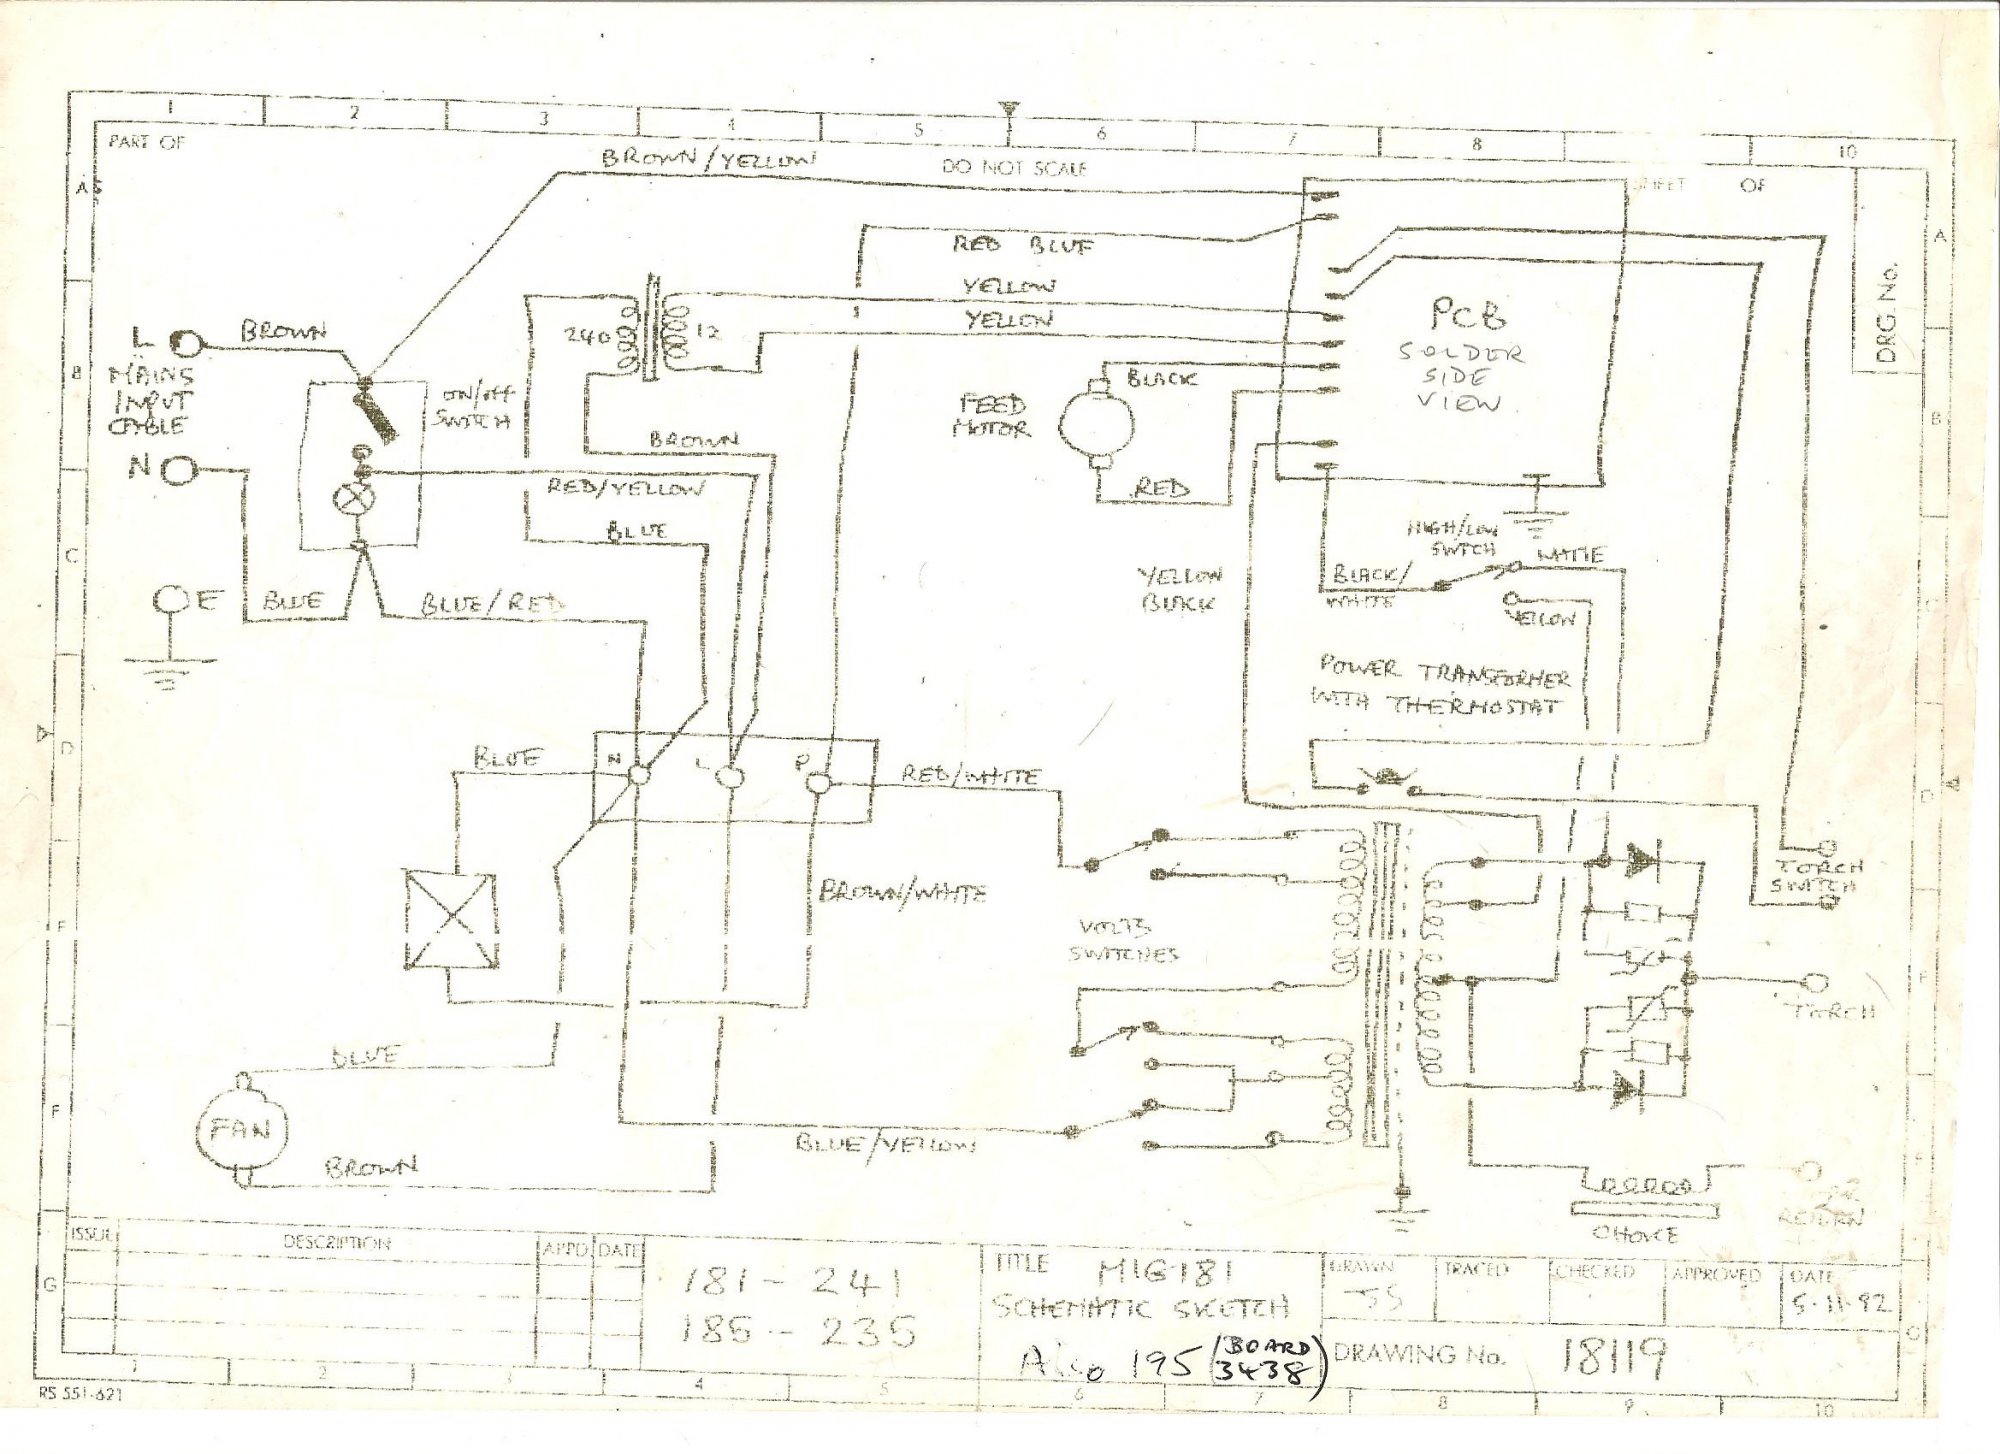 1 2 3 4 5 6 7 8 10
PART OF
BROWN/YELLOW
DO NOT SCALE
SHEET OF
A
A
RED BLUE
DRG. No.
YELLOW
YELLOW
240
12
PCB
SOLDER
SIDE
VIEW
L
BROWN
MAINS
INPUT
CABLE
N
ON/OFF
SWITCH
B
B
BLACK
FEED
MOTOR
RED
BROWN
RED/YELLOW
BLUE
C
C
HIGH/LOW
SWITCH
WHITE
BLACK/
WHITE
YELLOW
YELLOW
BLACK
E
BLUE
BLUE/RED
POWER TRANSFORMER
WITH THERMOSTAT
D
D
BLUE
N
L
P
RED/WHITE
BROWN/WHITE
TORCH
SWITCH
VOLTS
SWITCHES
TORCH
BLUE
FAN
BROWN
BLUE/YELLOW
F
RETURN
CHOKE
G
ISSUE DESCRIPTION APPD. DATE
181 - 241
185 - 235
TITLE MIG 181
SCHEMATIC SKETCH
Also 195 (BOARD 3438)
DRAWN JS
TRACED
CHECKED
APPROVED
DATE 5.11.92
DRAWING No. 18119
RS 551-621
2 4 5 6 7 8 9 10